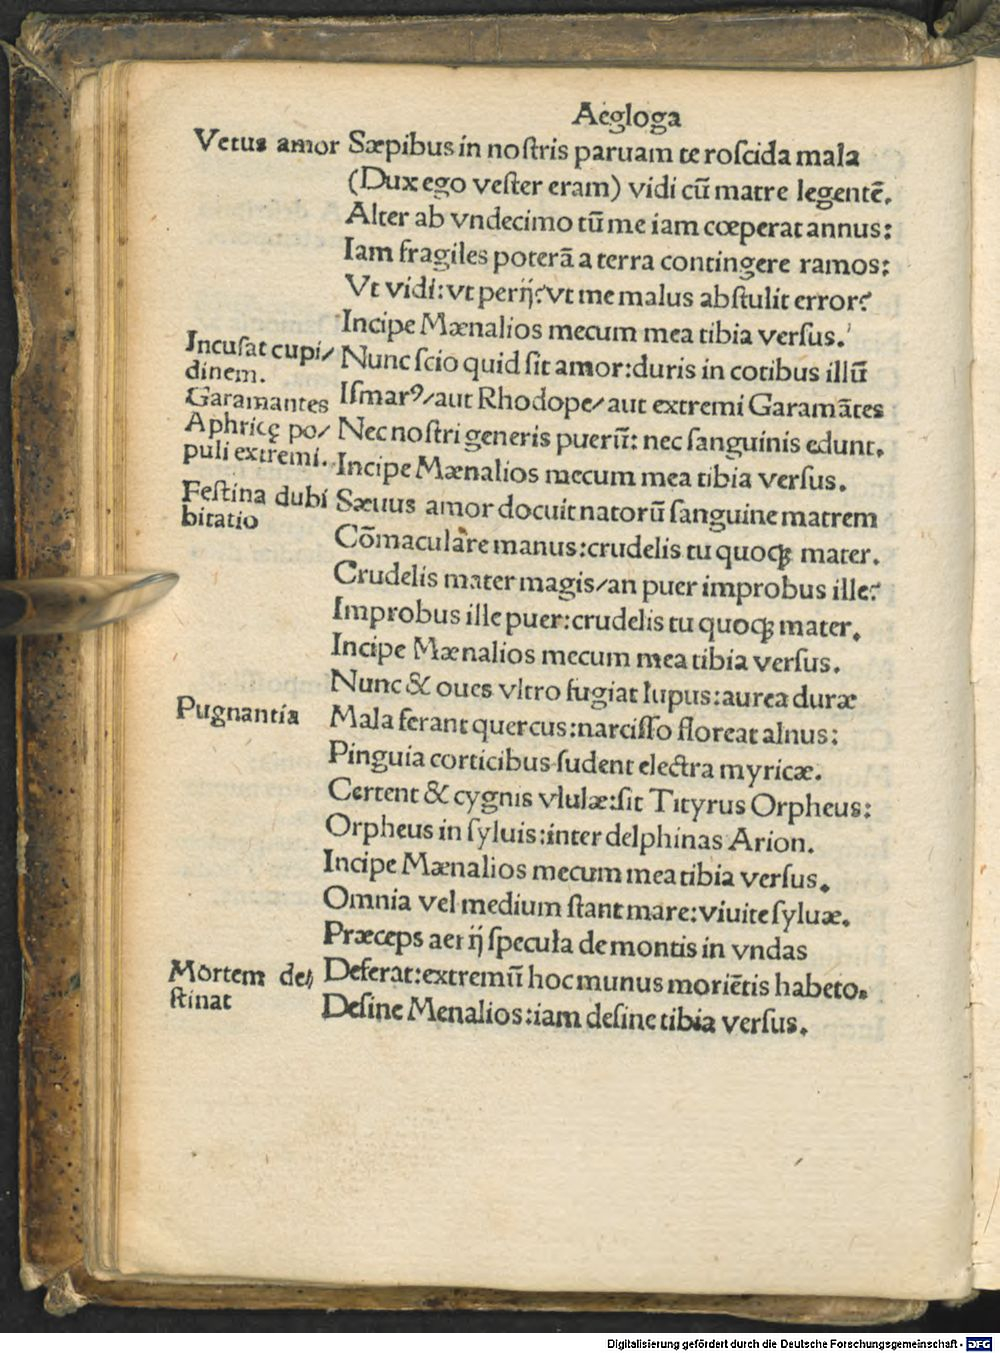 Aegloga
Vetus amor Sæpibus in noſtris paruam te roſcida mala
(Dux ego veſter eram) vidi cũ matre legentẽ.
Alter ab vndecimo tũ me iam cœperat annus:
Iam fragiles poterã a terra contingere ramos:
Vt vidi: vt perij? vt me malus abſtulit error?
Incipe Mænalios mecum mea tibia verſus.
Incuſat cupi/
dinem.
Nunc ſcio quid ſit amor: duris in cotibus illũ
Garamantes
Iſmarꝰ/ aut Rhodope/ aut extremi Garamãtes
Aphricę po/
puli extremi.
Nec noſtri generis puerũ: nec ſanguinis edunt.
Incipe Mænalios mecum mea tibia verſus.
Feſtina dubi
bitatio
Sæuus amor docuit natorũ ſanguine matrem
Cõmaculare manus: crudelis tu quoqꝫ mater.
Crudelis mater magis/ an puer improbus ille?
Improbus ille puer: crudelis tu quoqꝫ mater.
Incipe Mænalios mecum mea tibia verſus.
Nunc & oues vltro fugiat lupus: aurea duræ
Pugnantia Mala ferant quercus: narciſſo floreat alnus:
Pinguia corticibus ſudent electra myricæ.
Certent & cygnis vlulæ: ſit Tityrus Orpheus:
Orpheus in ſyluis: inter delphinas Arion.
Incipe Mænalios mecum mea tibia verſus.
Omnia vel medium ſtant mare: viuite ſyluæ.
Præceps aerij ſpecula de montis in vndas
Mortem de/
ſtinat
Deferar: extremũ hoc munus moriẽtis habeto.
Deſine Menalios: iam deſine tibia verſus.
Digitalisierung gefördert durch die Deutsche Forschungsgemeinschaft - DFG